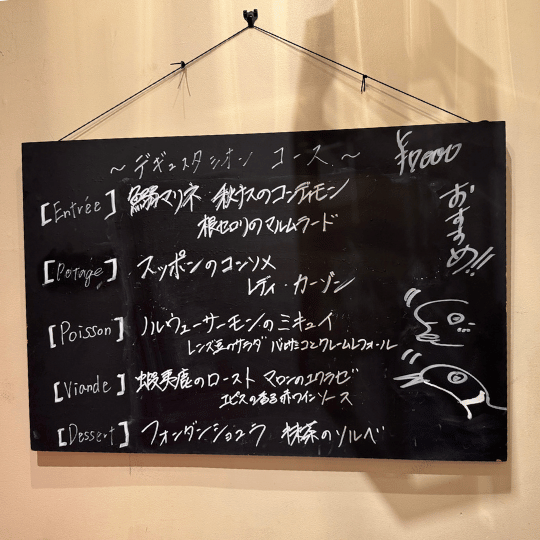 ～デギュスタシオン コース～
¥7000
おすすめ!!
[Entrée] 鰯マリネ・秋ナスのコンディモン
根セロリのレムラード
[Potage] スッポンのコンソメ
レディ・カーゾン
[Poisson] ノルウェーサーモンのミキュイ
レンズ豆のサラダ バルサミコとクレームレフォール
[Viande] 蝦夷鹿のロースト マロンのエクラゼ
エピスの香る赤ワインソース
[Dessert] フォンダンショコラ 抹茶のソルベ